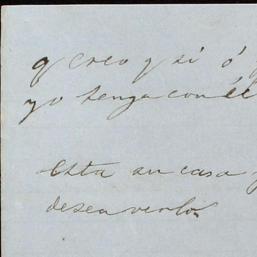 q creo q si ó
yo tenga con él
Esta su casa y
desea verlo